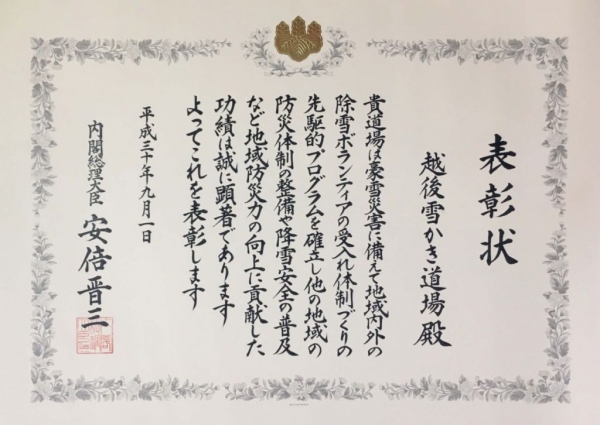 表彰状
越後雪かき道場殿
貴道場は豪雪災害に備えて地域内外の
除雪ボランティアの受入れ体制づくりの
先駆的プログラムを確立し他の地域の
防災体制の整備や降雪安全の普及
など地域防災力の向上に貢献した
功績は誠に顕著であります
よってこれを表彰します
平成三十年九月一日
内閣総理大臣 安倍晋三